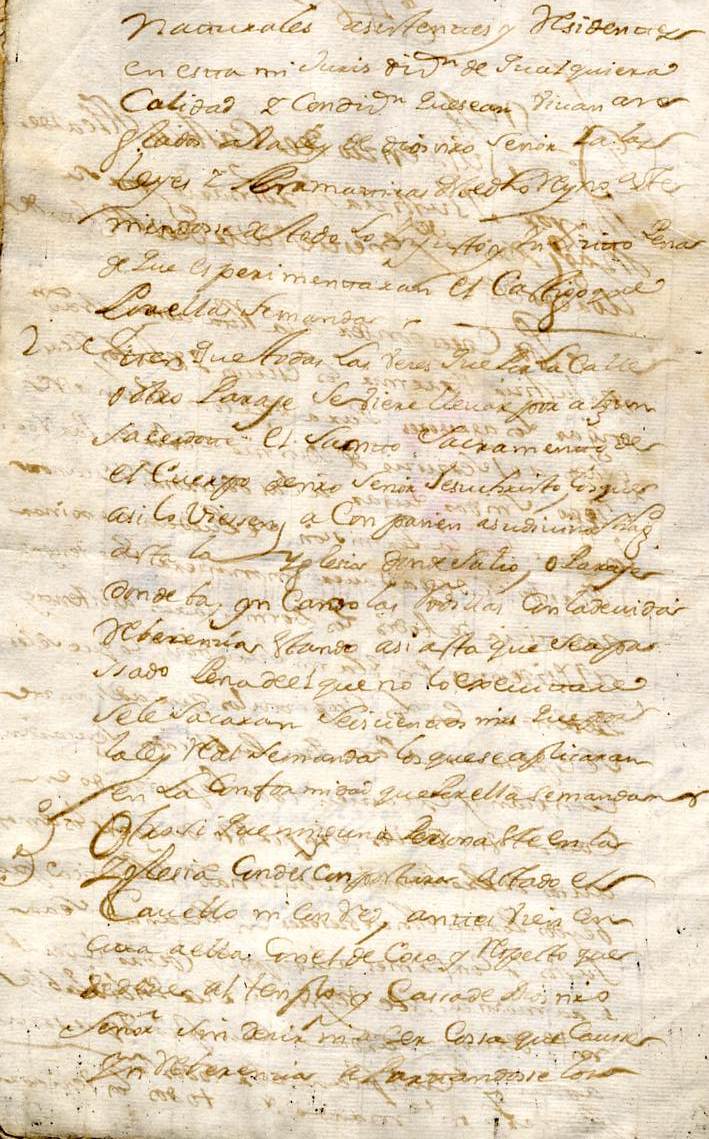 Naturales Asistentes y Residentes
en esta mi Jurisdizn de qualquiera
Calidad y Condizn que sean vivan arre
glados a la ley de Dios nro Señor a las
Leyes y Pramaticas de este Reyno aste
niendose de todo lo injusto Pena
de que esperimentaran el Castigo que
Por ellas se manda
2 Iten Que todas las veses que Por la Calle
o otro Paraje se viere llevar por algun
sacerdote el Santo Sacramento de
el Cuerpo de nro Señor Jesuchristo, los que
asi lo Viesen, aConpañen a su divina Mag
asta la Yglesia donde salio, o Paraje
donde ba, yncando las Rodillas con la devida
Reberenzia estando asi asta que sea pa
ssado Pena de el que no lo executare
se le sacaran Seiscientos mrs que por
la ley Real se manda los que se aplicaran
en La Conformidad que Por ella se manda
3 Otrosi Que ninguna Persona Este en la
Yglesia Con descompostura Atado el
Cavello ni Con Red, antes vien en
tre a ella con el de Coro y Respecto que
se deve al templo y Cassa de Dios nro
Señor sin dezir ni aser Cossa que Cause
yn Reberencia aPartandose los